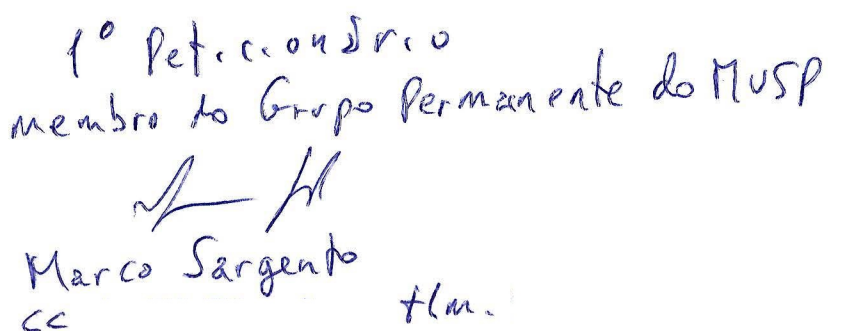 1º Peticionário
membro do Grupo Permanente do MUSP
Marco Sargento
CC tlm.